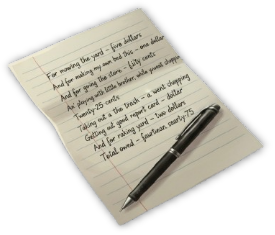 For mowing the yard - five dollars
And for making my own bed this - one dollar
And for going the store - fifty cents
An playing with little brother, while you
Twenty-25 cents
Taking out a the trash - a went shopping
Getting out good report card - dollar
And for raking yard - two dollars
Total owed - fourteen,